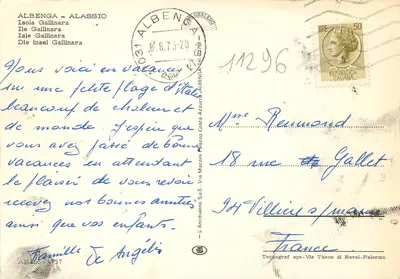 ALBENGA - ALASSIO
Isola Gallinara
Ile Gallinara
Isle Gallinara
Die Insel Gallinara
17031 ALBENGA
6.73-20
11296
50
Nous voici en vacances
sur une petite plage d'Italie
beaucoup de chaleur et
de monde. J'espère que
vous avez passé de bonnes
vacances en attendant
le plaisir de vous revoir
recevez nos bonnes amitiés
ainsi que vos enfants.
Famille De Angélis
S.a.S. Via Mazzini Palazzo Costa Azzurra
Mme Renmond
18 rue de Gallet
94 Villiers s/marne
France
Tecnograf spa - Via Thaon di Revel - Palermo